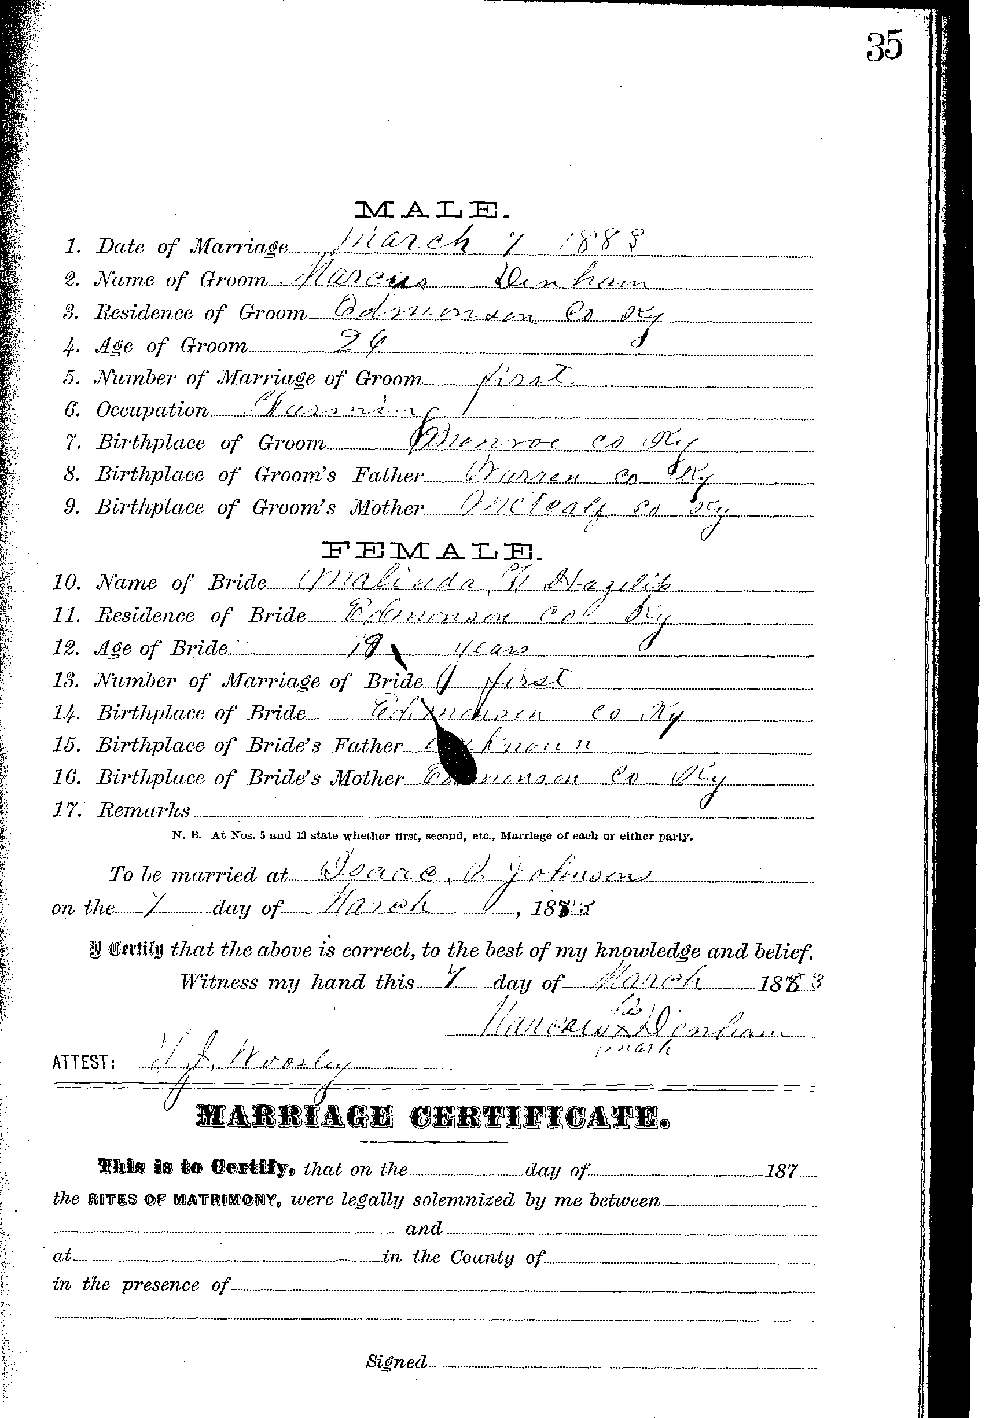 35
MALE.
1. Date of Marriage March 7 1883
2. Name of Groom Marcus Denham
3. Residence of Groom Edmonson Co Ky
4. Age of Groom 26
5. Number of Marriage of Groom first
6. Occupation Farming
7. Birthplace of Groom Monroe co Ky
8. Birthplace of Groom's Father Warren co Ky
9. Birthplace of Groom's Mother Metcalf co Ky
FEMALE.
10. Name of Bride Malinda Hazelip
11. Residence of Bride Edmonson co Ky
12. Age of Bride 19 years
13. Number of Marriage of Bride first
14. Birthplace of Bride Edmonson co Ky
15. Birthplace of Bride's Father unknown
16. Birthplace of Bride's Mother Edmonson Co Ky
17. Remarks
N. B. At Nos. 5 and 13 state whether first, second, etc., Marriage of each or either party.
To be married at Isaac Johnsons
on the 7 day of March, 188
I Certify that the above is correct, to the best of my knowledge and belief.
Witness my hand this 7 day of March 1883
his
Marcus x Denham
mark
ATTEST: J. Woosley
MARRIAGE CERTIFICATE.
This is to Certify, that on the day of 187
the RITES OF MATRIMONY, were legally solemnized by me between
and
at in the County of
in the presence of
Signed